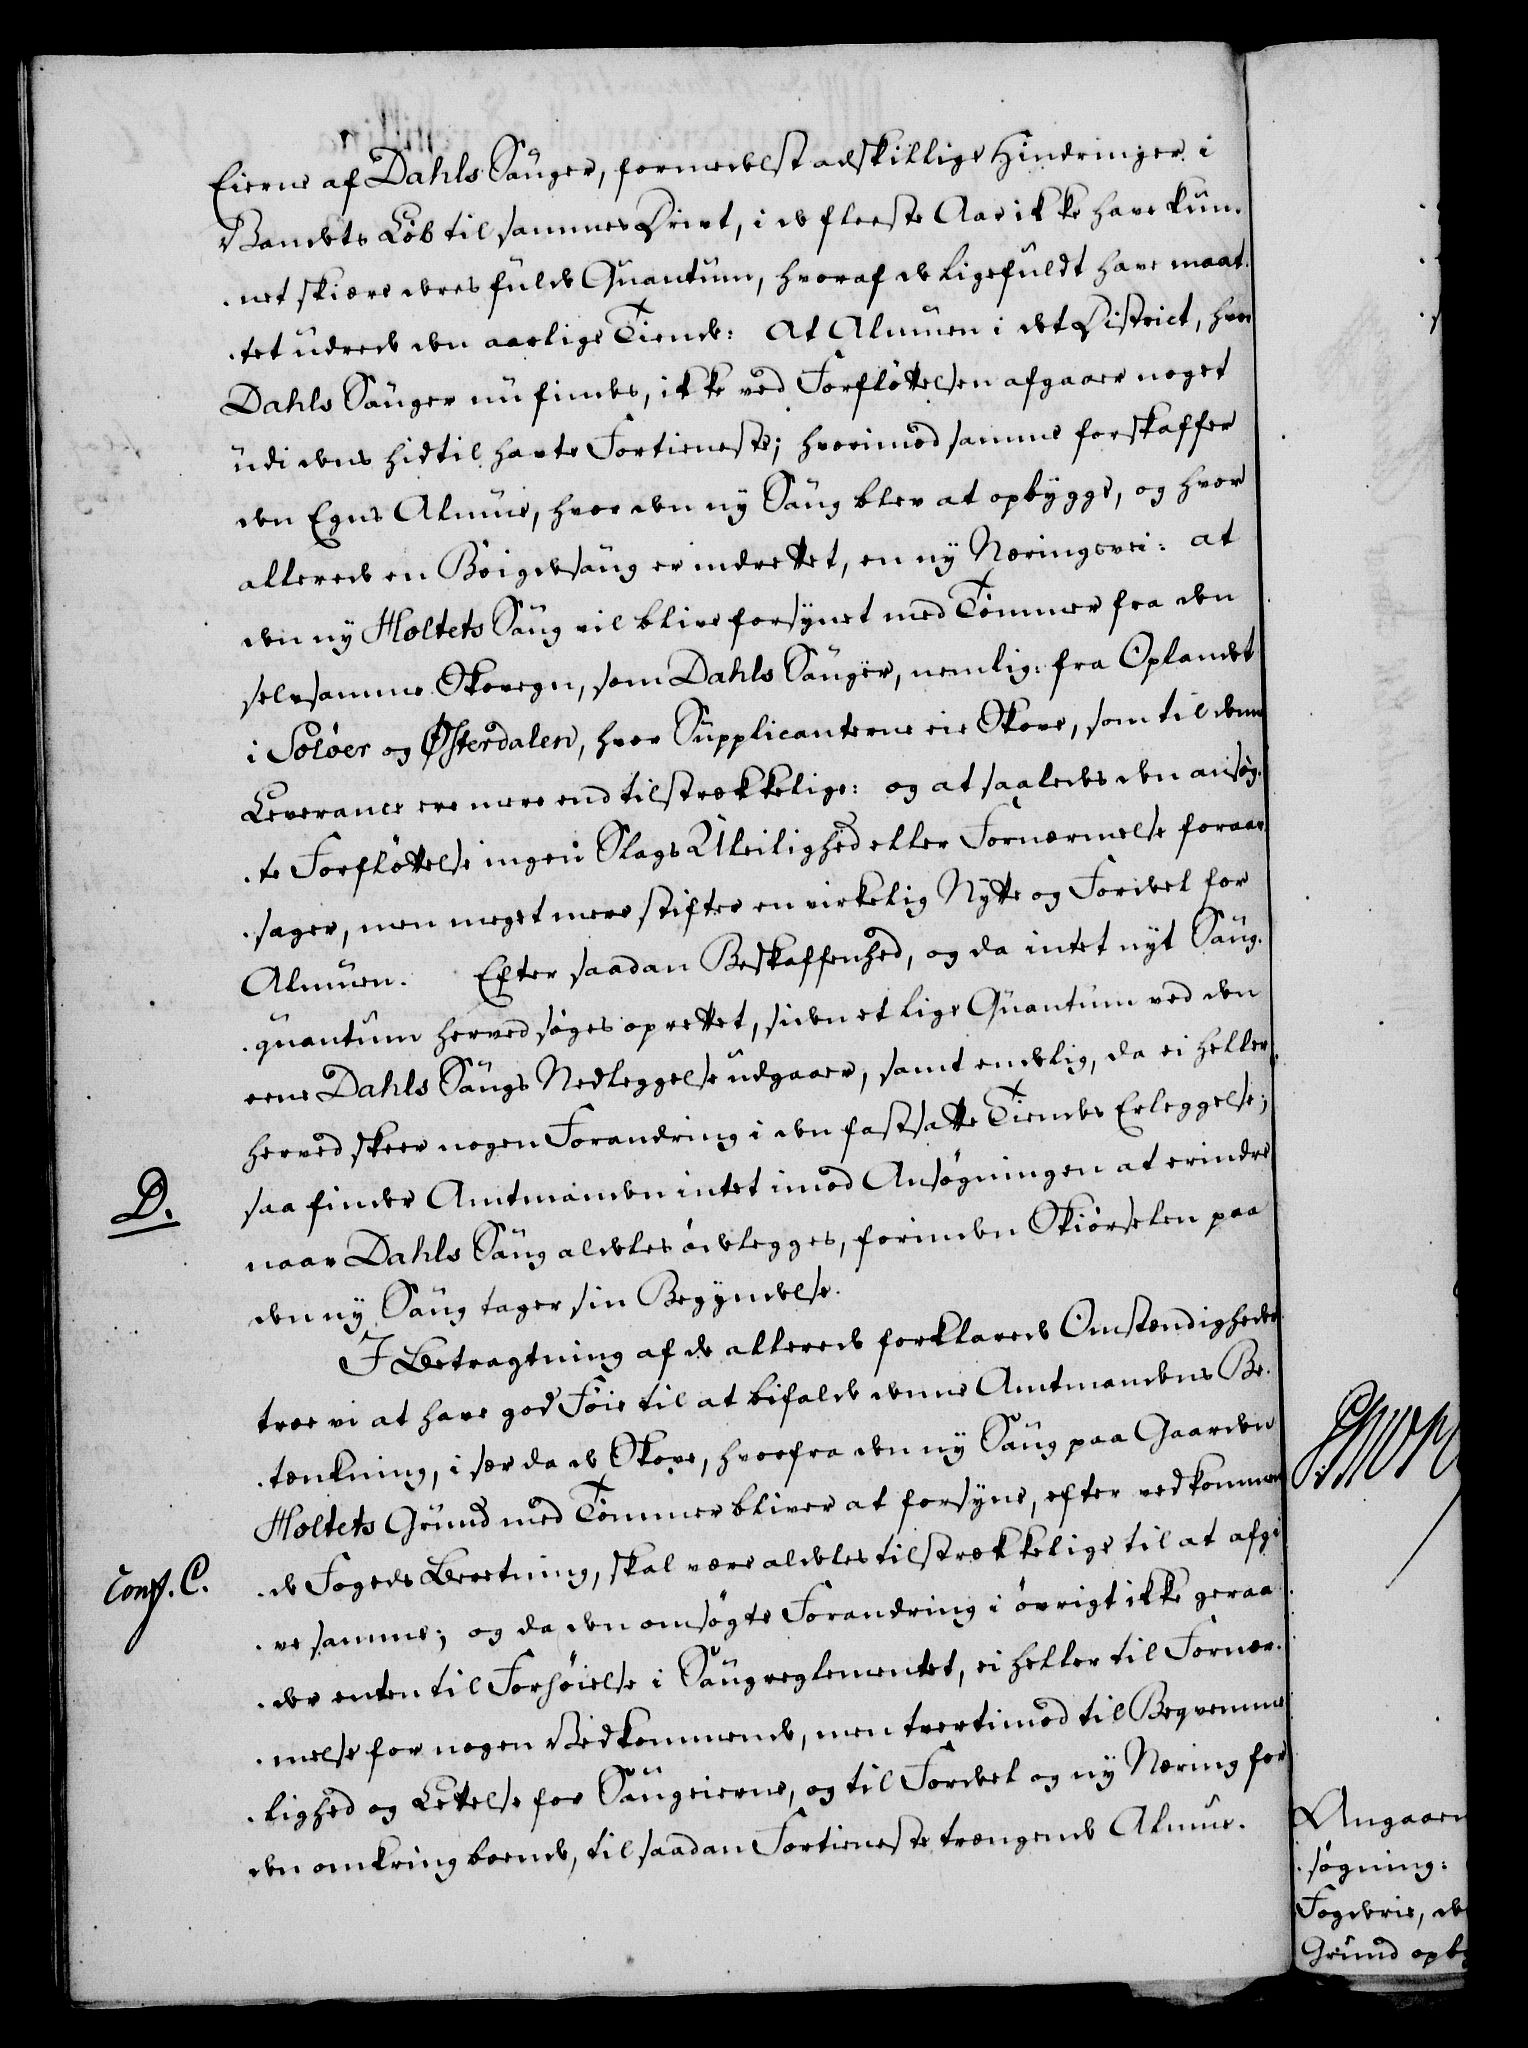 Eierne af Dahls Sauger, formedelst adskillige Hindringer i
Vandets Løb til sammes Drivt, i de fleeste Aar ikke have kun-
-net skiære deres fulde Quantum, hvoraf de ligefuldt have maat-
-tet udrede den aarlige Tiende: At Almuen i det District, hvor
Dahls Sauger nu findes, ikke ved Forfløttelsen afgaaer noget
udi dens hidtil havte Fortieneste; hvorimod samme forskaffer
den Egns Almue, hvor den ny Saug blev at opbygge, og hvor
allerede en Bøigdesaug er indrettet, en ny Næringsvei: at
den ny Holtets Saug vil blive forsynet med Tømmer fra den
selvsamme Skovegn, som Dahls Sauger, nemlig: fra Oplandet
i Soløer og Østerdalen, hvor Supplicanterne eie Skove, som til denne
Leverance ere mere end tilstrækkelige: og at saaledes den ansøg-
-te Forfløttelse ingen Slags Uleilighed eller Fornærmelse foraar-
-sager, men meget mere stifter en virkelig Nytte og Fordeel for
Almuen. Efter saadan Beskaffenhed, og da intet nyt Saug-
-quantum herved søges oprettet, siden et lige Quantum ved den
eene Dahls Saugs Nedleggelse udgaaer, samt endelig, da ei heller
herved skeer nogen Forandring i den fastsatte Tiendes Erleggelse;
D. saa finder Amtmanden intet imod Ansøgningen at erindre
naar Dahls Saug aldeles ødelegges, forinden Skiørselen paa
den ny Saug tager sin Begyndelse.
I Betragtning af de allerede forklarede Omstændigheder
troe vi at have god Føie til at bifalde denne Amtmandens Be-
-tænkning, i sær da de Skove, hvorfra den ny Saug paa Gaarden
Holtets Grund med Tømmer bliver at forsyne, efter vedkommen-
Conf. C. -de Fogeds Beretning, skal være aldeles tilstrækkelige til at afgi-
-ve samme; og da den omsøgte Forandring i øvrigt ikke geraa-
-der enten til Forhøielse i Saugreglementet, ei heller til Fornær-
-melse for nogen Vedkommende, men tvertimod til Beqvemme-
-lighed og Lettelse for Saugeierne, og til Fordeel og ny Næring for
den omkring boende, til saadan Fortieneste trængende Almue.
Angaaen
søgning:
Fogderie, de
Grund opby